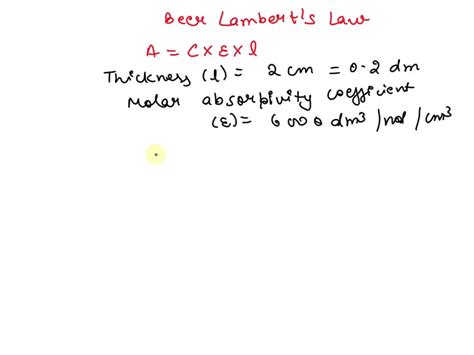 Beer Lambert's Law
A = C × ε × l
Thickness (l) = 2 cm = 0.2 dm
Molar absorpivity coefficient
(ε) = 6000 dm³ /mol / cm³